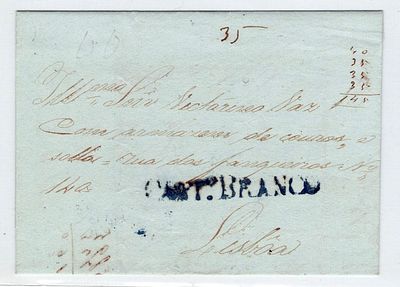 35
40
35
35
35
145
Ill.mo Snr Victorino Vaz
Com armazem de couros e
solla = rua dos fanqueiros No
CAST.º BRANCO
Lisboa